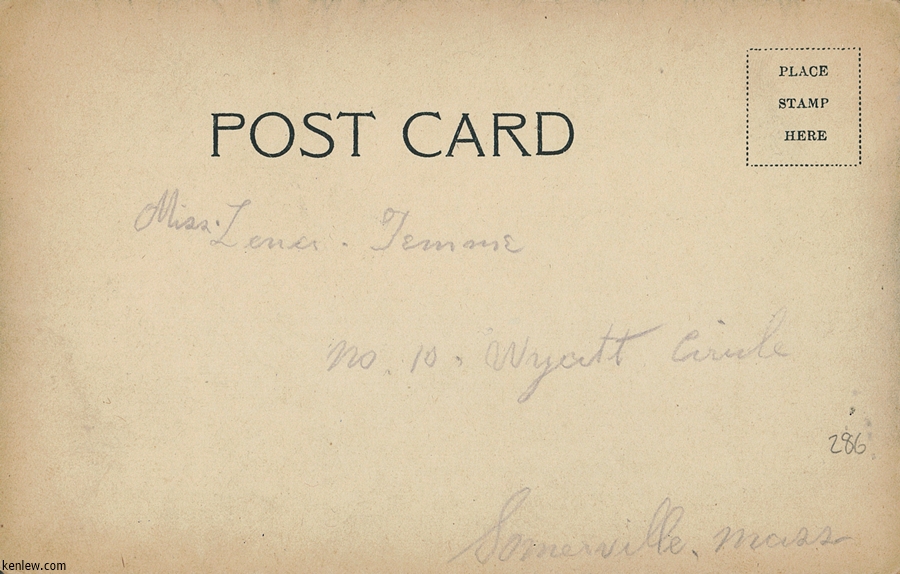 PLACE
STAMP
HERE
POST CARD
Miss. Lena. Temme
No. 10. Wyatt Circle
286
Somerville. Mass
kenlew.com